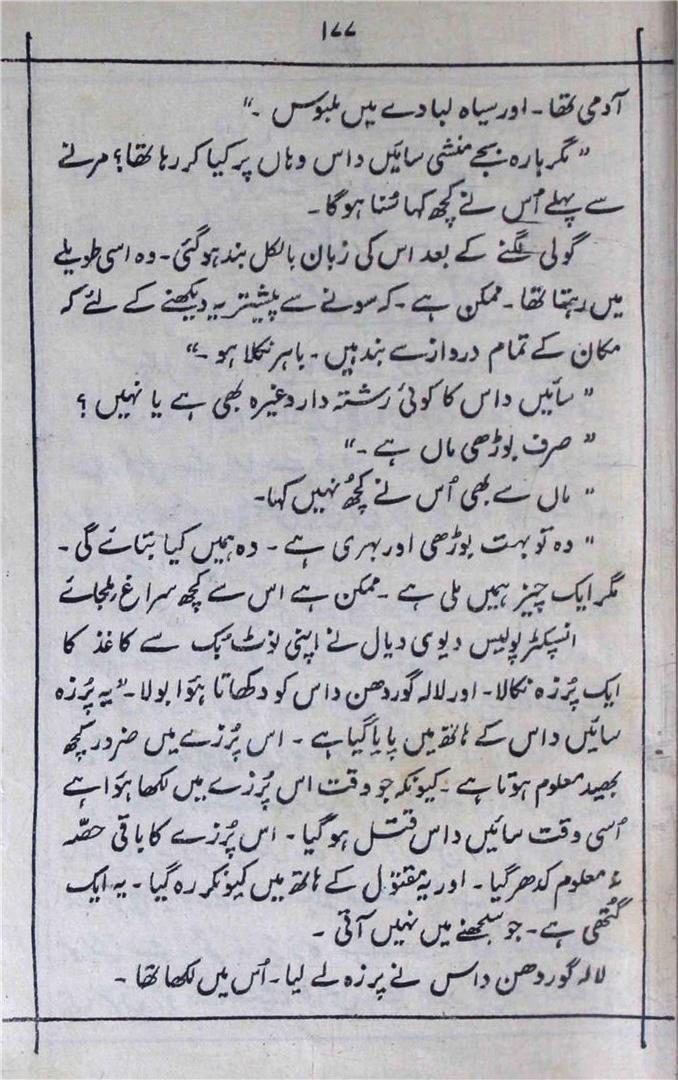 ۱۷۷
آدمی تھا۔ اور سیاہ لبادے میں ملبوس ۔"
" مگر بارہ بجے منشی سائیں داس وہاں پر کیا کر رہا تھا؟ مرنے
سے پہلے اُس نے کچھ کہا سُنا ہوگا۔
گولی لگنے کے بعد اس کی زبان بالکل بند ہوگئی۔ وہ اسی طویلے
میں رہتا تھا۔ ممکن ہے۔ کہ سونے سے پیشتر یہ دیکھنے کے لئے کہ
مکان کے تمام دروازے بند ہیں۔ باہر نکلا ہو ۔"
" سائیں داس کا کوئی رشتہ دار وغیرہ بھی ہے یا نہیں ؟
" صرف بوڑھی ماں ہے ۔"
" ماں سے بھی اُس نے کچھ نہیں کہا۔
" وہ تو بہت بوڑھی اور بہری ہے ۔ وہ ہمیں کیا بتائے گی ۔
مگر ایک چیز ہمیں ملی ہے ۔ ممکن ہے اس سے کچھ سراغ ملجائے
انسپکٹر پولیس دیوی دیال نے اپنی نوٹ بک سے کاغذ کا
ایک پُرزہ نکالا۔ اور لالہ گوردھن داس کو دکھاتا ہؤا بولا۔ "یہ پُرزہ
سائیں داس کے ہاتھ میں پایا گیا ہے ۔ اس پُرزے میں ضرور کچھ
بھید معلوم ہوتا ہے ۔ کیونکہ جو وقت اس پُرزے میں لکھا ہؤا ہے
اُسی وقت سائیں داس قتل ہو گیا ۔ اس پُرزے کا باقی حصّہ
معلوم کدھر گیا ۔ اور یہ مقتول کے ہاتھ میں کیونکر رہ گیا ۔ یہ ایک
گُتھی ہے۔ جو سمجھنے میں نہیں آتی ۔
لالہ گوردھن داس نے پرزہ لے لیا۔ اُس میں لکھا تھا ۔